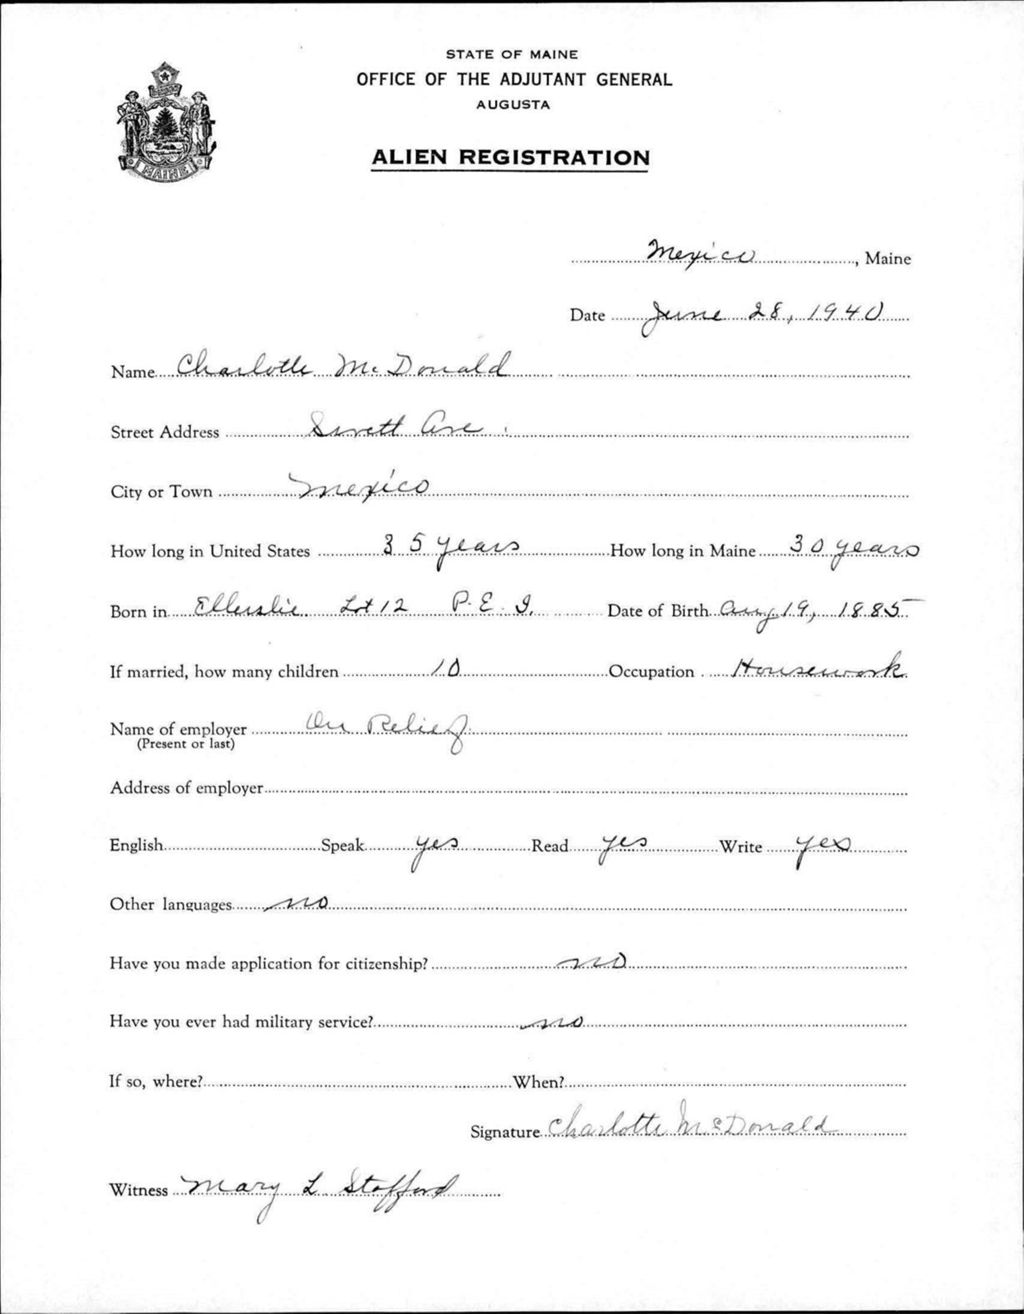 STATE OF MAINE
OFFICE OF THE ADJUTANT GENERAL
AUGUSTA
ALIEN REGISTRATION
MAINE
Mexico, Maine
Date June 28, 1940
Name Charlotte McDonald
Street Address Ave.
City or Town Mexico
How long in United States 35 years How long in Maine 30 years
Born in Ellerslie Lot 12 P.E.I. Date of Birth Aug 19, 1885
If married, how many children 10 Occupation Housework
Name of employer On Relief
(Present or last)
Address of employer
English Speak yes Read yes Write yes
Other languages no
Have you made application for citizenship? no
Have you ever had military service? no
If so, where? When?
Signature Charlotte McDonald
Witness Mary L Stafford